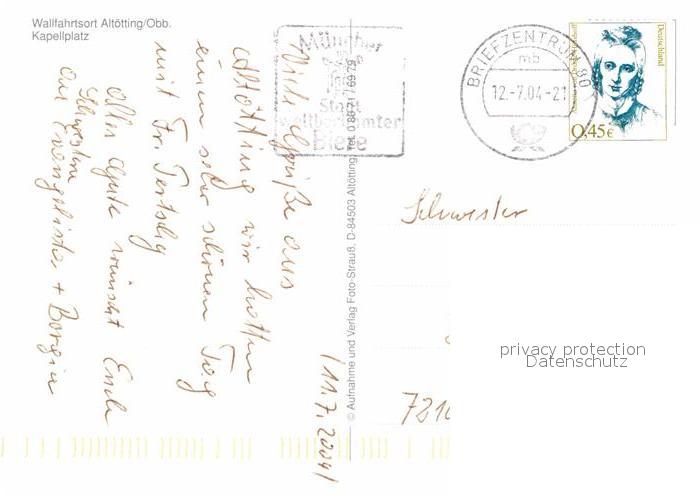 Wallfahrtsort Altötting/Obb.
Kapellplatz
Viele Grüße aus
Altötting wir hatten
einen sehr schönen Tag
mit Fr.
Alles Gute wünscht Euch
Schwester
Evangelista + Borgia
(11.7.2004)
© Aufnahme und Verlag Foto-Strauß, D-84503 Altötting, Tel. 0 86 71 / 69 79
München
Stadt
weltberühmter
Biere
BRIEFZENTRUM 80
mb
12.-7.04-21
Deutschland
0,45€
Schwester
7210
privacy protection
Datenschutz